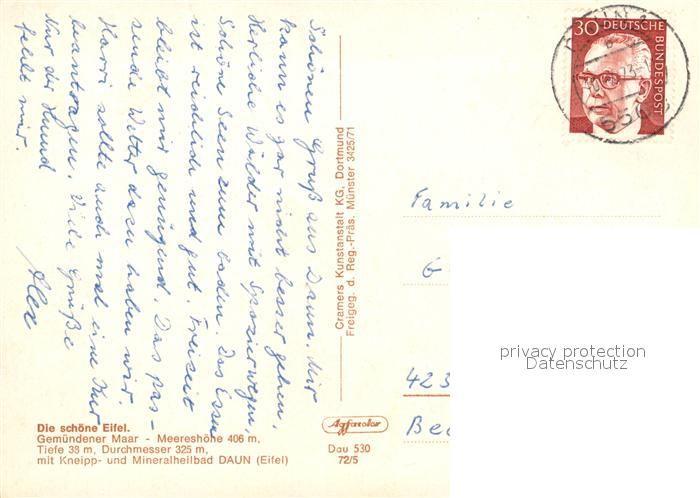 Schönen Gruß aus Daun. Mir
kann es gar nicht besser gehen.
Herliche Wälder mit Spazierwegen,
Schöne Seen zum baden. Das Essen
ist reichlich und gut. Freizeit
bleibt mir genügend. Das pas-
sende Wetter dazu haben wir.
Harri sollte auch mal eine Kur
beantragen. Viele Grüße
Nur der Hund
fehlt mir.
Alex
Cramers Kunstanstalt KG, Dortmund
Freigeg. d. Reg.-Präs. Münster 3425/71
30 DEUTSCHE
BUNDESPOST
Familie
G
423
Be
privacy protection
Datenschutz
Die schöne Eifel.
Gemündener Maar - Meereshöhe 406 m,
Tiefe 38 m, Durchmesser 325 m,
mit Kneipp- und Mineralheilbad DAUN (Eifel)
Agfacolor
Dau 530
72/5